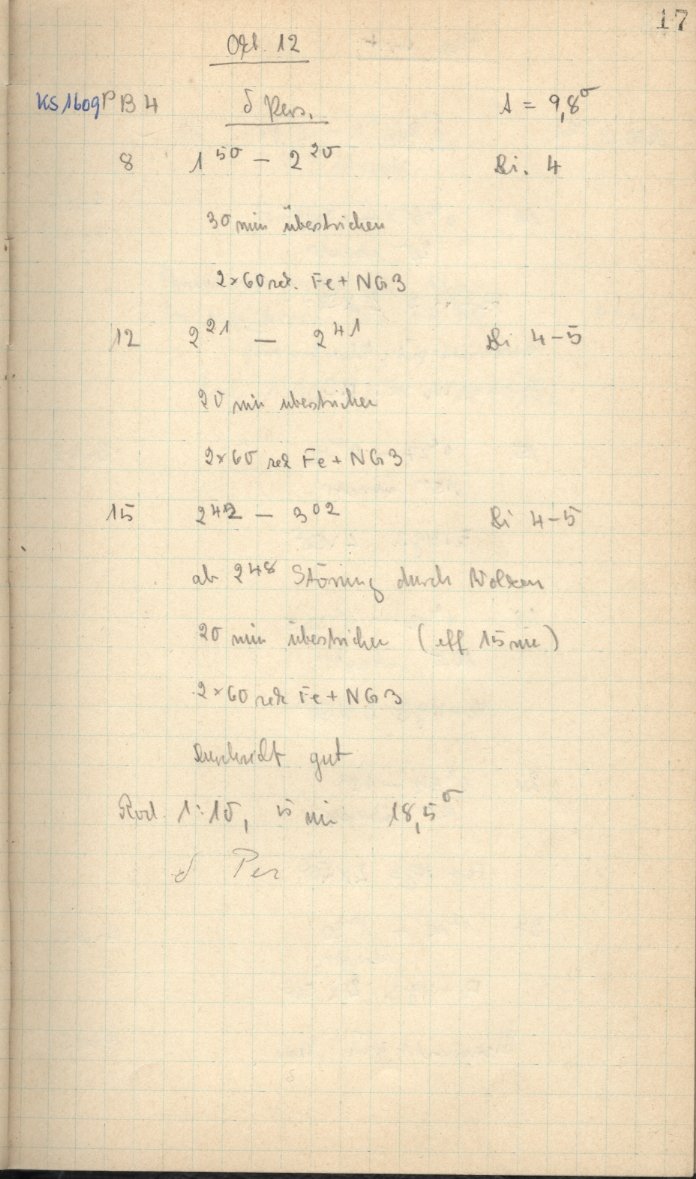 17
Okt. 12
KS1609P B4 δ Pers. A = 9,8°
8 1 50 – 2 20 Bi. 4
30 min überstrichen
2×60 sek. Fe + NG3
12 2 21 – 2 41 Bi 4–5
20 min überstrichen
2×60 sek Fe + NG3
15 2 42 – 3 02 Bi 4–5
ab 2 48 Störung durch Wolken
20 min überstrichen (eff 15 min)
2×60 sek Fe + NG3
Durchsicht gut
Rod. 1:10, min 18,5°
δ Per